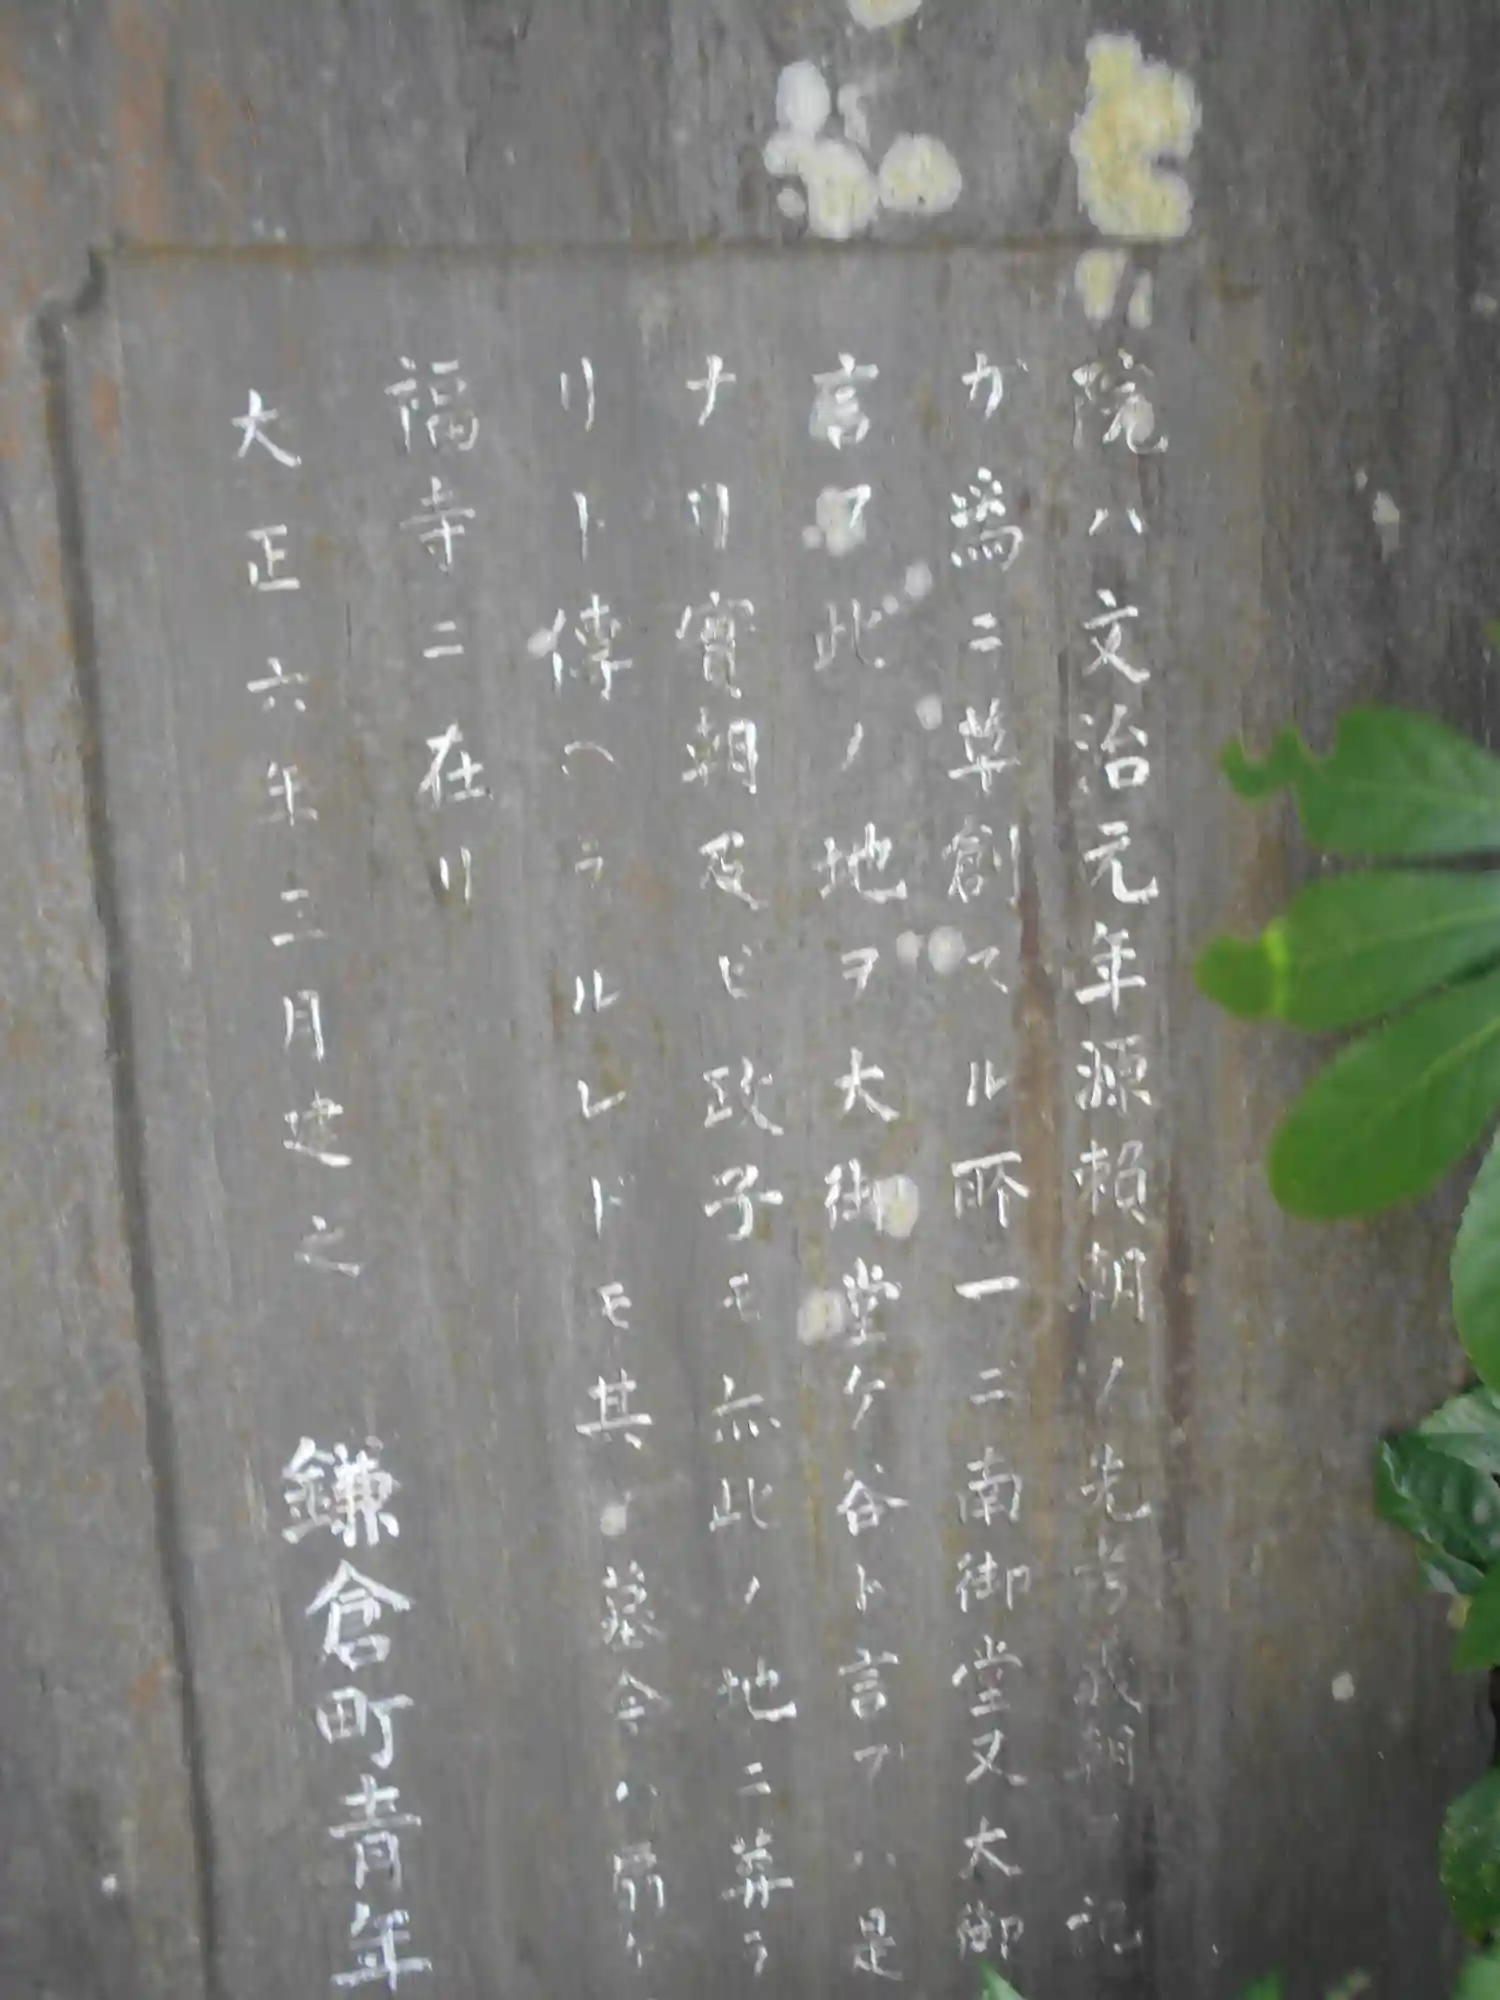 院ハ文治元年源頼朝ノ先考義朝ヲ祀
ガ為ニ草創スル所一ニ南御堂又大御
言フ此ノ地ヲ大御堂ケ谷ト言フハ是
ナリ實朝及ビ政子モ亦此ノ地ニ葬ラ
リト傳ヘラルレドモ其ノ墓今ハ扇ケ
福寺ニ在リ
大正六年三月建之 鎌倉町青年